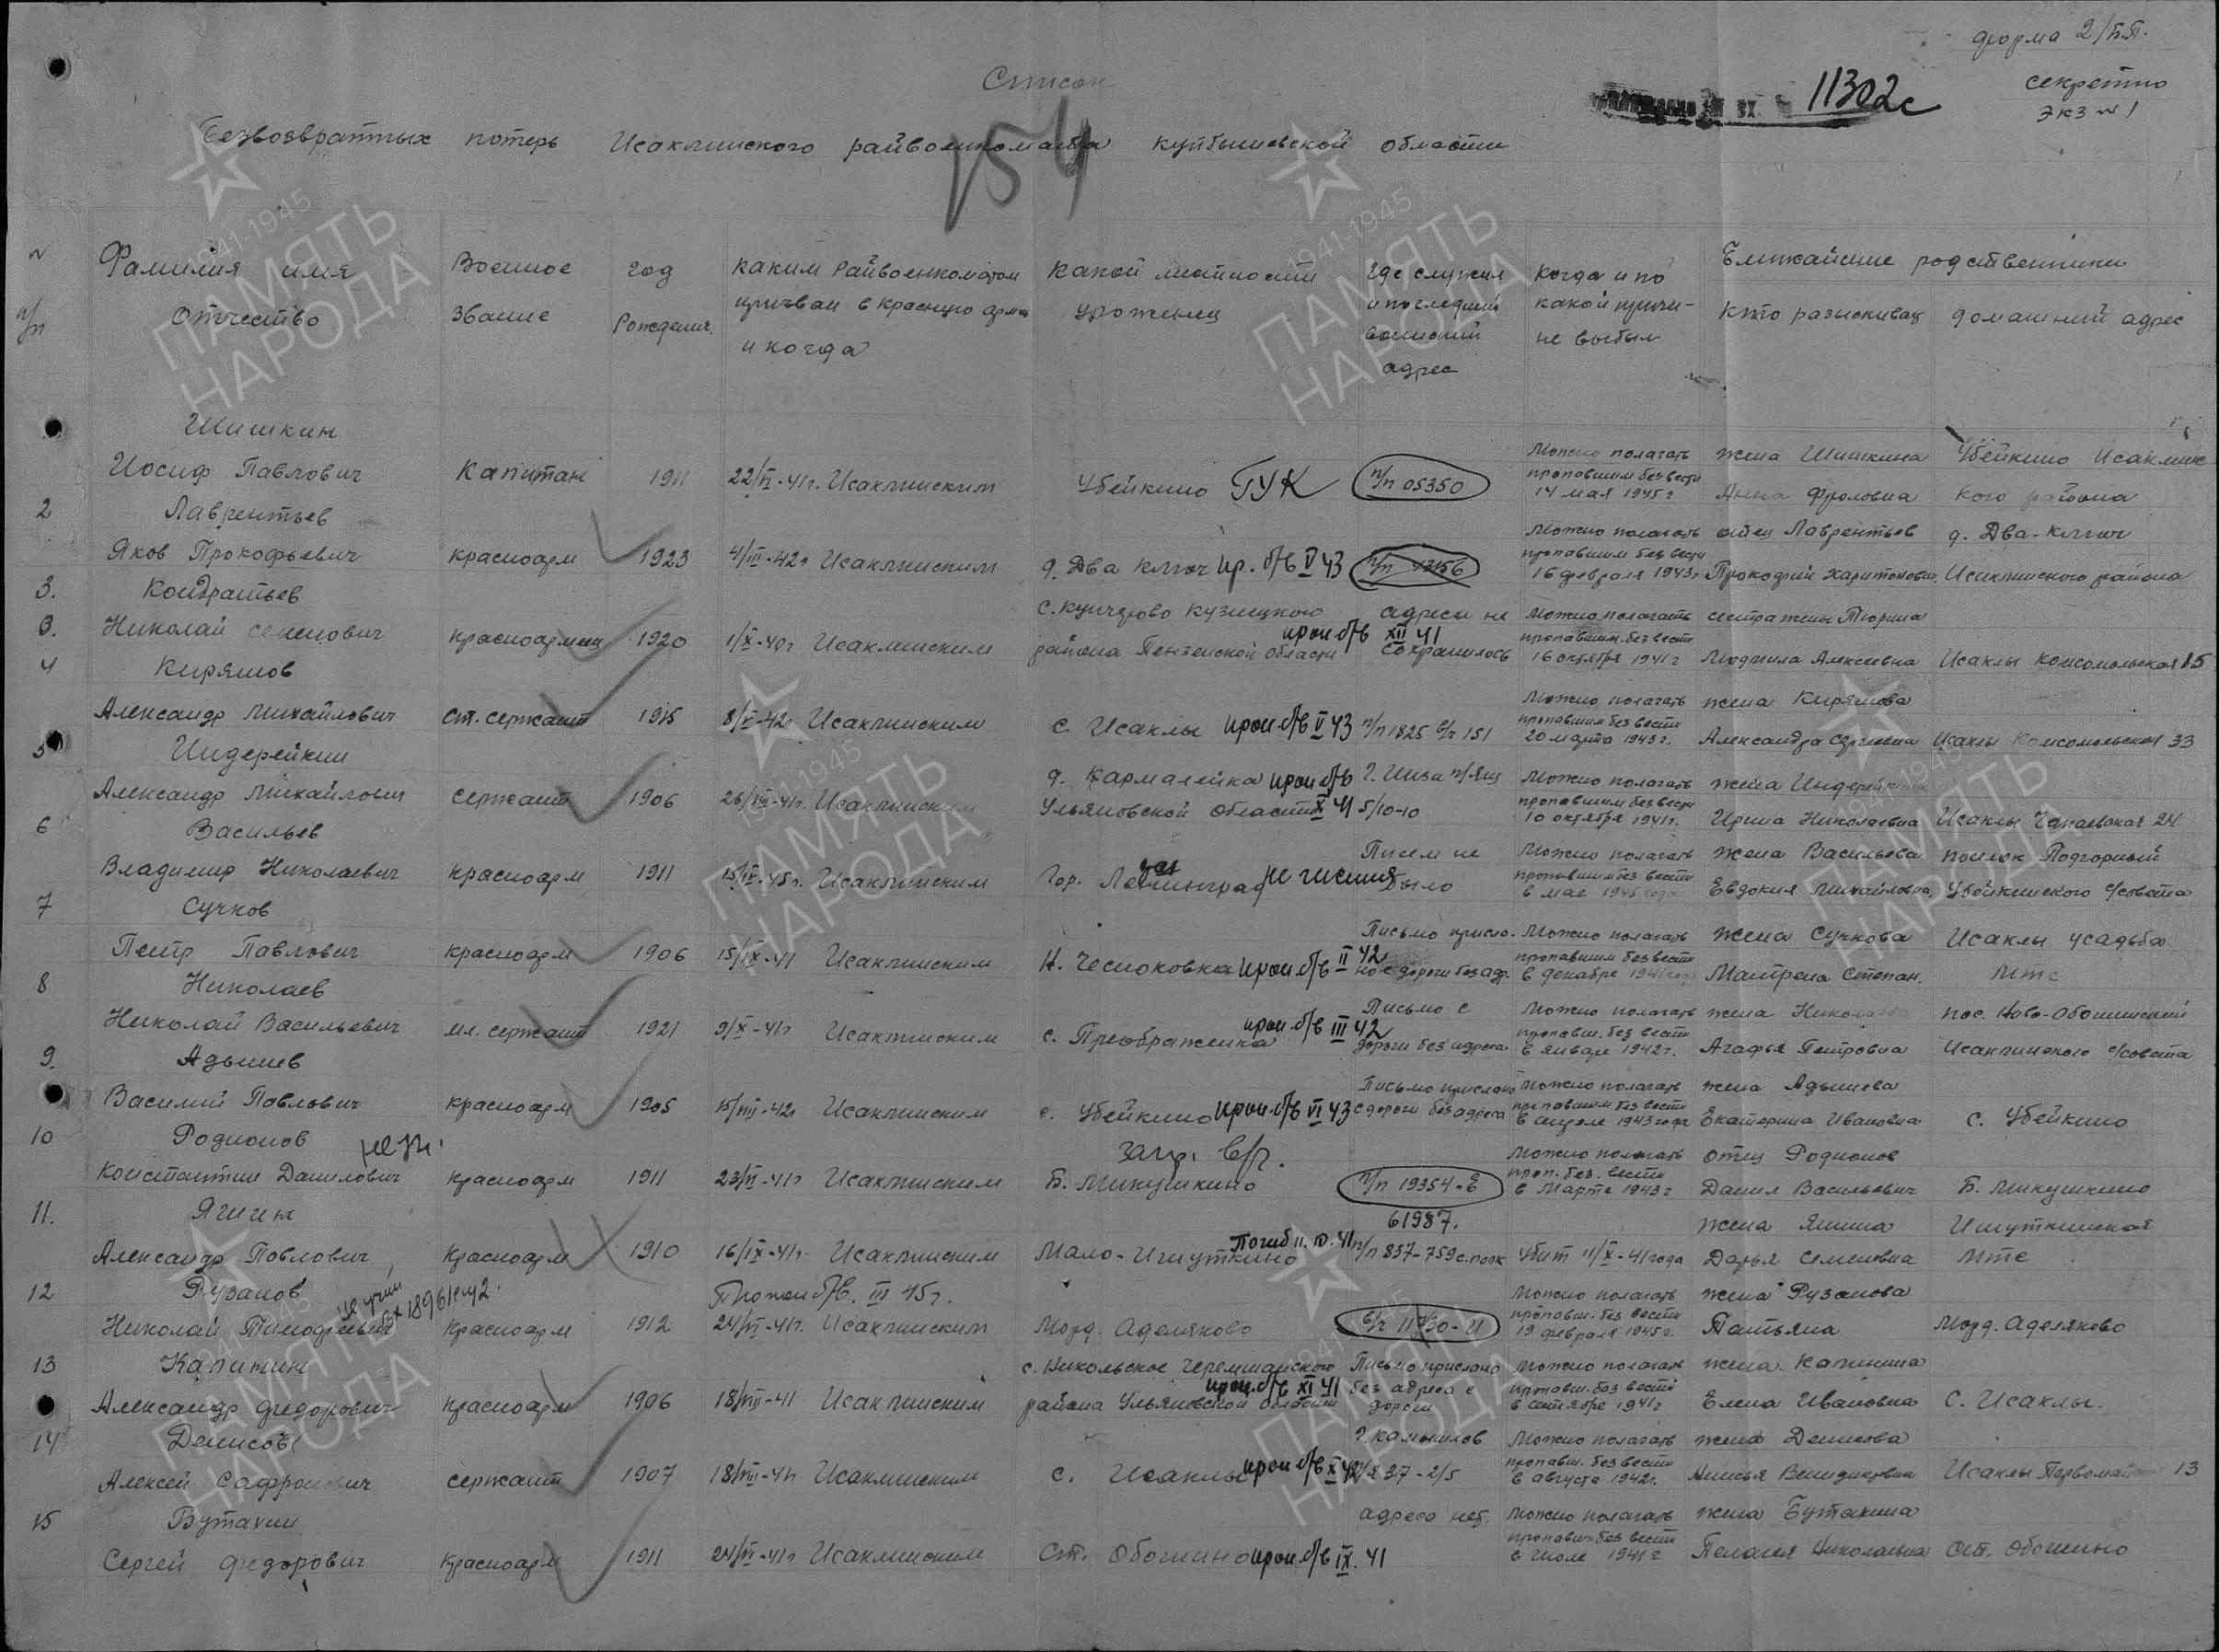 форма 2/Б.П.
секретно
экз № 1
11302с
Список
154
Безвозвратных потерь Исаклинского райвоенкомата Куйбышевской области
№ п/п
Фамилия имя Отчество
Военное звание
год Рождения
каким Райвоенкоматом призван в красную армию и когда
какой местности уроженец
где служил и последний воинский адрес
когда и по какой причине выбыл
Ближайшие родственники
кто разыскивает
домашний адрес
Шишкин
Иосиф Павлович Капитан 1911 22/VI-41г. Исаклинским Убейкино ГУК п/п 05350
Можно полагать пропавшим без вести 14 мая 1945 г
жена Шишкина Анна Фроловна
Убейкино Исаклинского района
2 Лаврентьев
Яков Прокофьевич красноарм 1923 4/III-42г Исаклинским д. Два ключ пр. б/в V 43
Можно полагать пропавшим без вести 16 февраля 1943г
отец Лаврентьев Прокофий Харитонович
д. Два-ключ Исаклинского района
3. Кондратьев
3. Николай Семенович красноармеец 1920 1/X-40г Исаклинским
Кузнецкого района Пензенской области проп б/в XII 41
адреса не сохранилось
Можно полагать пропавшим без вести 16 октября 1941г
сестра жены Тюрина Людмила Алексеевна
Исаклы Комсомольская 15
4 Киряшов
Александр Михайлович ст. сержант 1915 8/V-42г Исаклинским с. Исаклы проп б/в V 43 п/п 1825 в/ч 151
Можно полагать пропавшим без вести 20 марта 1943г.
жена Киряшова Александра Сергеевна
Исаклы Комсомольская 33
5 Индерейкин
Александр Михайлович сержант 1906 26/VIII-41г. Исаклинским
д. Кармалейка Ульяновской области проп б/в X 41
г. Инза п/ящ 5/10-10
Можно полагать пропавшим без вести 10 октября 1941г.
жена Ирина Николаевна
Исаклы Чапаевская 24
6 Васильев
Владимир Николаевич красноарм 1911 Исаклинским Гор. Ленинград
Писем не было
Можно полагать пропавшим без вести в мае 1945 года
жена Васильева Евдокия Михайловна
поселок Подгорный Убейкинского с/совета
7 Сучков
Петр Павлович красноарм 1906 15/IX-41 Исаклинским Н. Чесноковка проп б/в II 42
Можно полагать пропавшим без вести в декабре 1941 году
жена Сучкова Матрена Степан.
Исаклы усадьба МТС
8 Николаев
Николай Васильевич мл. сержант 1921 9/X-41г Исаклинским с. Преображенка проп б/в III 42
Письмо с дороги без адреса
Можно полагать пропавш. без вести в январе 1942г.
жена Николаева Агафья Петровна
пос. Ново-Обошинский Исаклинского с/совета
9. Адышев
Василий Павлович красноарм 1905 15/VIII-42г Исаклинским с. Убейкино проп б/в VI 43
Письмо прислано с дороги без адреса
Можно полагать пропавшим без вести 1943 года
жена Адышева Екатерина Ивановна
с. Убейкино
10 Родионов
Константин Данилович красноарм 1911 23/VI-41г Исаклинским Б. Микушкино п/п 19354-Е
Можно полагать проп. без вести в марте 1943г
отец Родионов Данил Васильевич
Б. Микушкино
11. Яшин
61987.
Александр Павлович красноарм 1910 16/IX-41г Исаклинским Мало-Ишуткино
п/п 837-759 с. полк
Убит 11/X-41 года
жена Яшина Дарья Семеновна
Ишуткинская МТС
12 Рузанов
Пропал б/в. III 45г.
Николай Тимофеевич красноарм 1912 24/VI-41г. Исаклинским Морд. Аделяково
Можно полагать пропавш. без вести 19 февраля 1945г.
жена Рузанова Татьяна
Морд. Аделяково
13 Калинин
Александр Федорович красноарм 1906 18/VIII-41 Исаклинским
с. Никольское Черемшанского района Ульяновской области проп. б/в XI 41
Письмо прислано без адреса с дороги
Можно полагать пропавш. без вести в сентябре 1941г
жена Калинина Елена Ивановна
С. Исаклы.
14 Денисов
Алексей Сафронович сержант 1907 18/VIII-41г Исаклинским с. Исаклы проп б/в X 42
г. Камышлов
Можно полагать пропавш. без вести в августе 1942г.
жена Денисова
Исаклы 13
15 Бутахин
Сергей Федорович красноарм 1911 24/VI-41г Исаклинским ст. Обошино проп б/в IX. 41
адреса нет.
Можно полагать пропавш без вести в июле 1941г
жена Бутахина Пелагея Николаевна
ст. Обошино
1941-1945
ПАМЯТЬ
НАРОДА